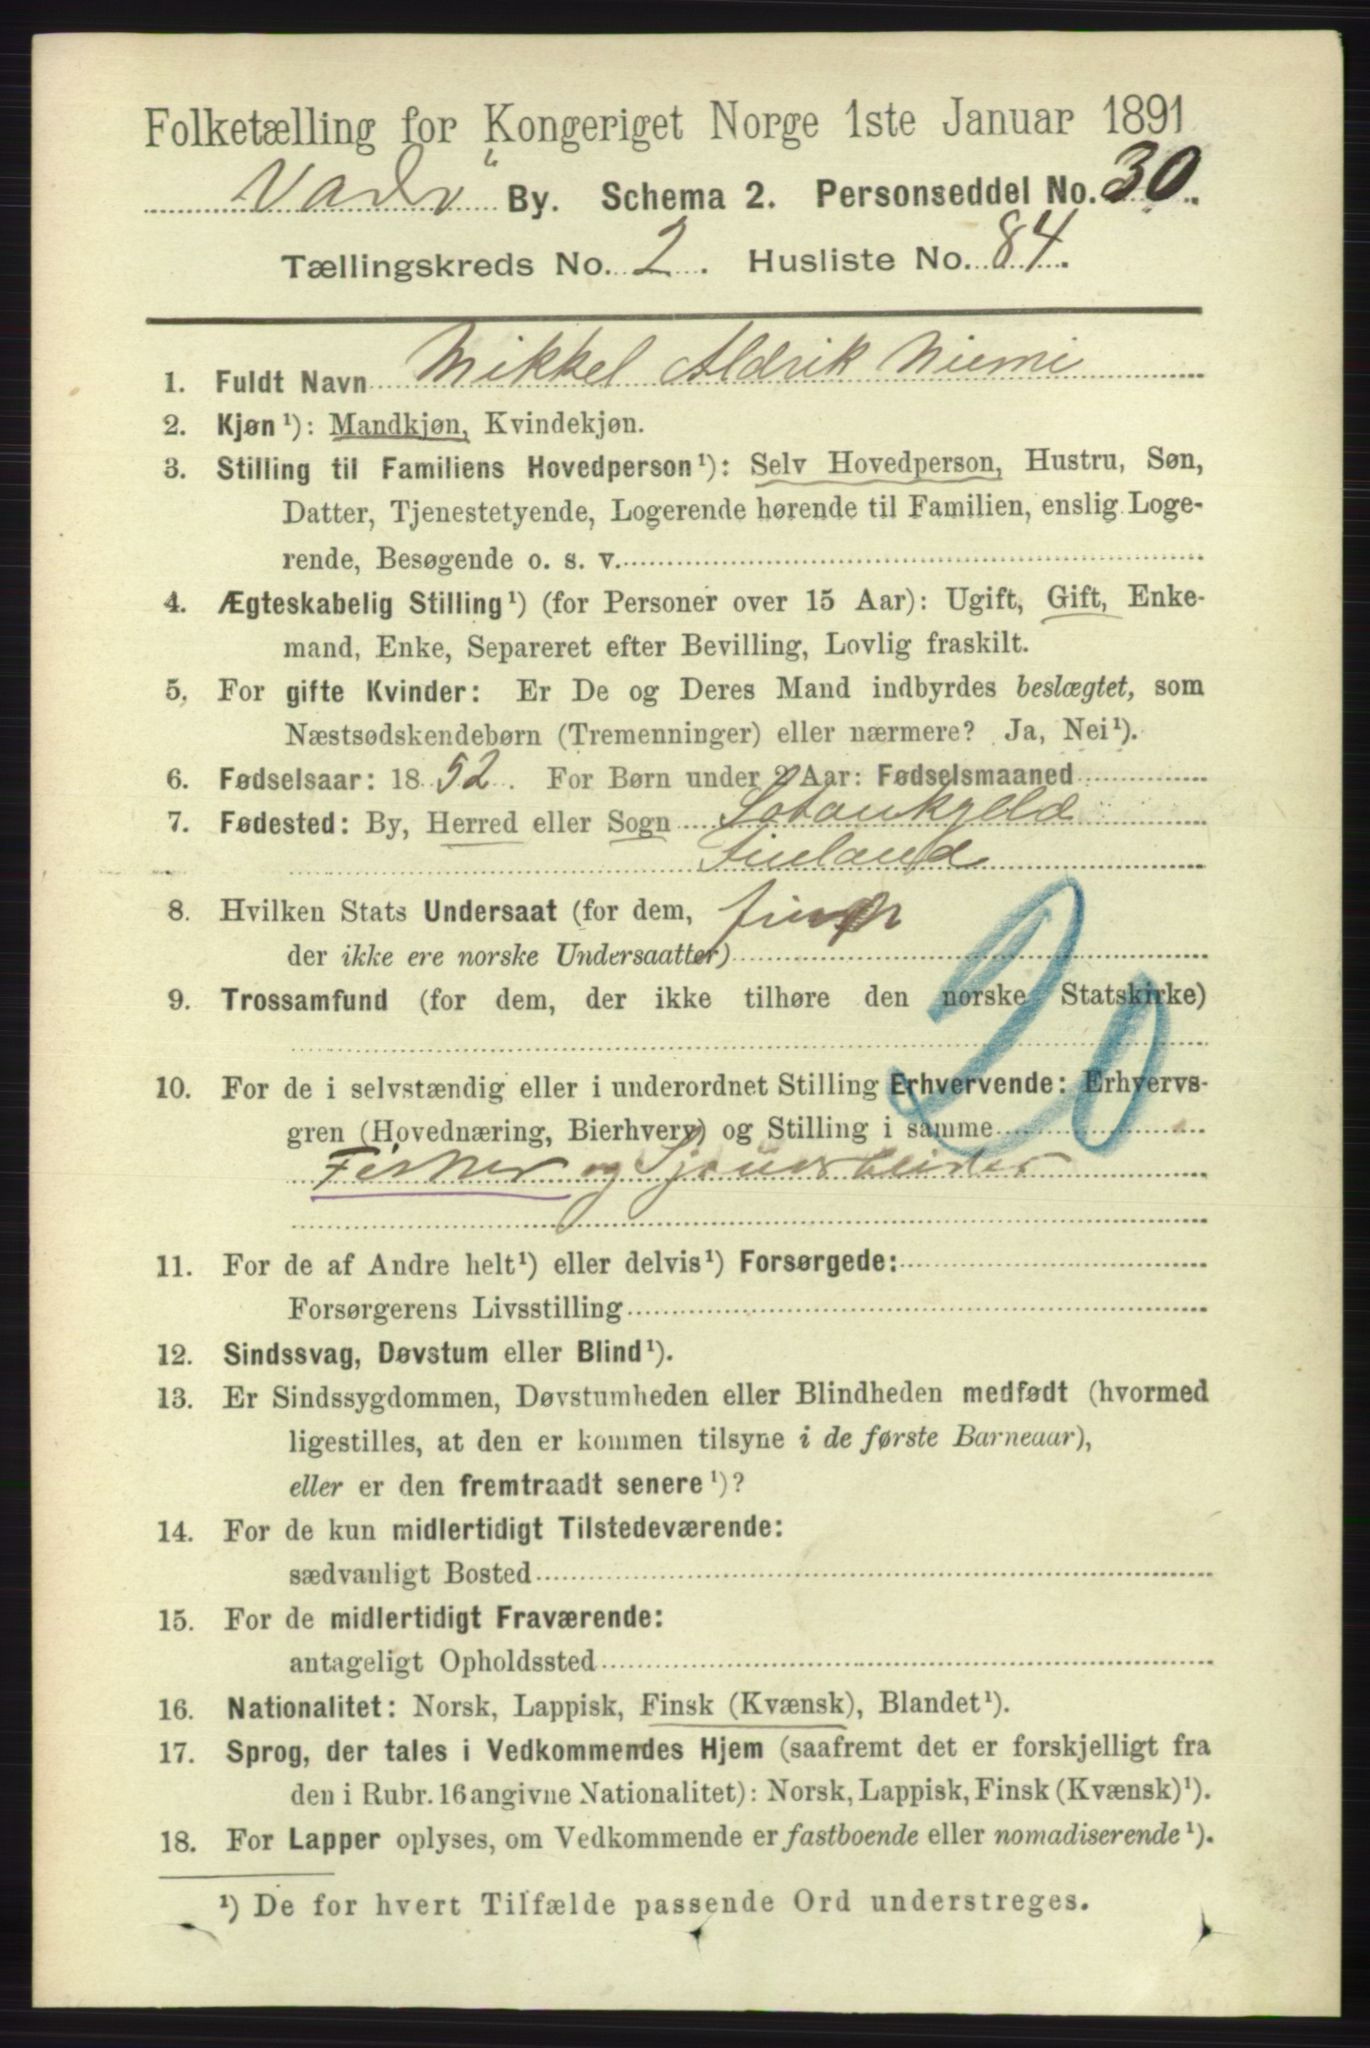 Folketælling for Kongeriget Norge 1ste Januar 1891
Vadsö By. Schema 2. Personseddel No. 30.
Tællingskreds No. 2. Husliste No. 84.
1. Fuldt Navn Mikkel Aldrik Niemi
2. Kjøn¹): Mandkjøn, Kvindekjøn.
3. Stilling til Familiens Hovedperson¹): Selv Hovedperson, Hustru, Søn,
Datter, Tjenestetyende, Logerende hørende til Familien, enslig Loge-
rende, Besøgende o. s. v.
4. Ægteskabelig Stilling¹) (for Personer over 15 Aar): Ugift, Gift, Enke-
mand, Enke, Separeret efter Bevilling, Lovlig fraskilt.
5. For gifte Kvinder: Er De og Deres Mand indbyrdes beslægtet, som
Næstsødskendebørn (Tremenninger) eller nærmere? Ja, Nei¹).
6. Fødselsaar: 1852. For Børn under 2 Aar: Fødselsmaaned
7. Fødested: By, Herred eller Sogn
Finland
8. Hvilken Stats Undersaat (for dem, finsk
der ikke ere norske Undersaatter)
9. Trossamfund (for dem, der ikke tilhøre den norske Statskirke)
20
10. For de i selvstændig eller i underordnet Stilling Erhvervende: Erhvervs-
gren (Hovednæring, Bierhverv) og Stilling i samme
Fisker og Sjouerbeider
11. For de af Andre helt¹) eller delvis¹) Forsørgede:
Forsørgerens Livsstilling
12. Sindssvag, Døvstum eller Blind¹).
13. Er Sindssygdommen, Døvstumheden eller Blindheden medfødt (hvormed
ligestilles, at den er kommen tilsyne i de første Barneaar),
eller er den fremtraadt senere¹)?
14. For de kun midlertidigt Tilstedeværende:
sædvanligt Bosted
15. For de midlertidigt Fraværende:
antageligt Opholdssted
16. Nationalitet: Norsk, Lappisk, Finsk (Kvænsk), Blandet¹).
17. Sprog, der tales i Vedkommendes Hjem (saafremt det er forskjelligt fra
den i Rubr. 16 angivne Nationalitet): Norsk, Lappisk, Finsk (Kvænsk)¹).
18. For Lapper oplyses, om Vedkommende er fastboende eller nomadiserende¹).
¹) De for hvert Tilfælde passende Ord understreges.